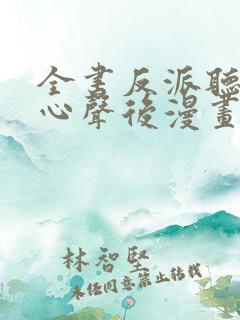 全書反派聽
心聲後漫畫
林智堅
未經同意禁止轉載